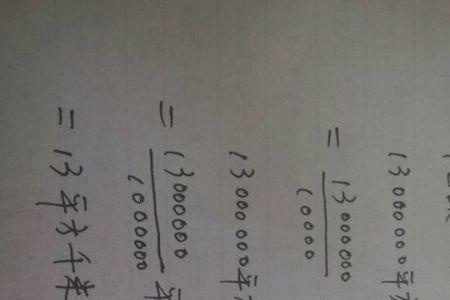 13000000平方
= 13000000
10000
13000000平方
= 13000000 平
1000000
= 13平方千米